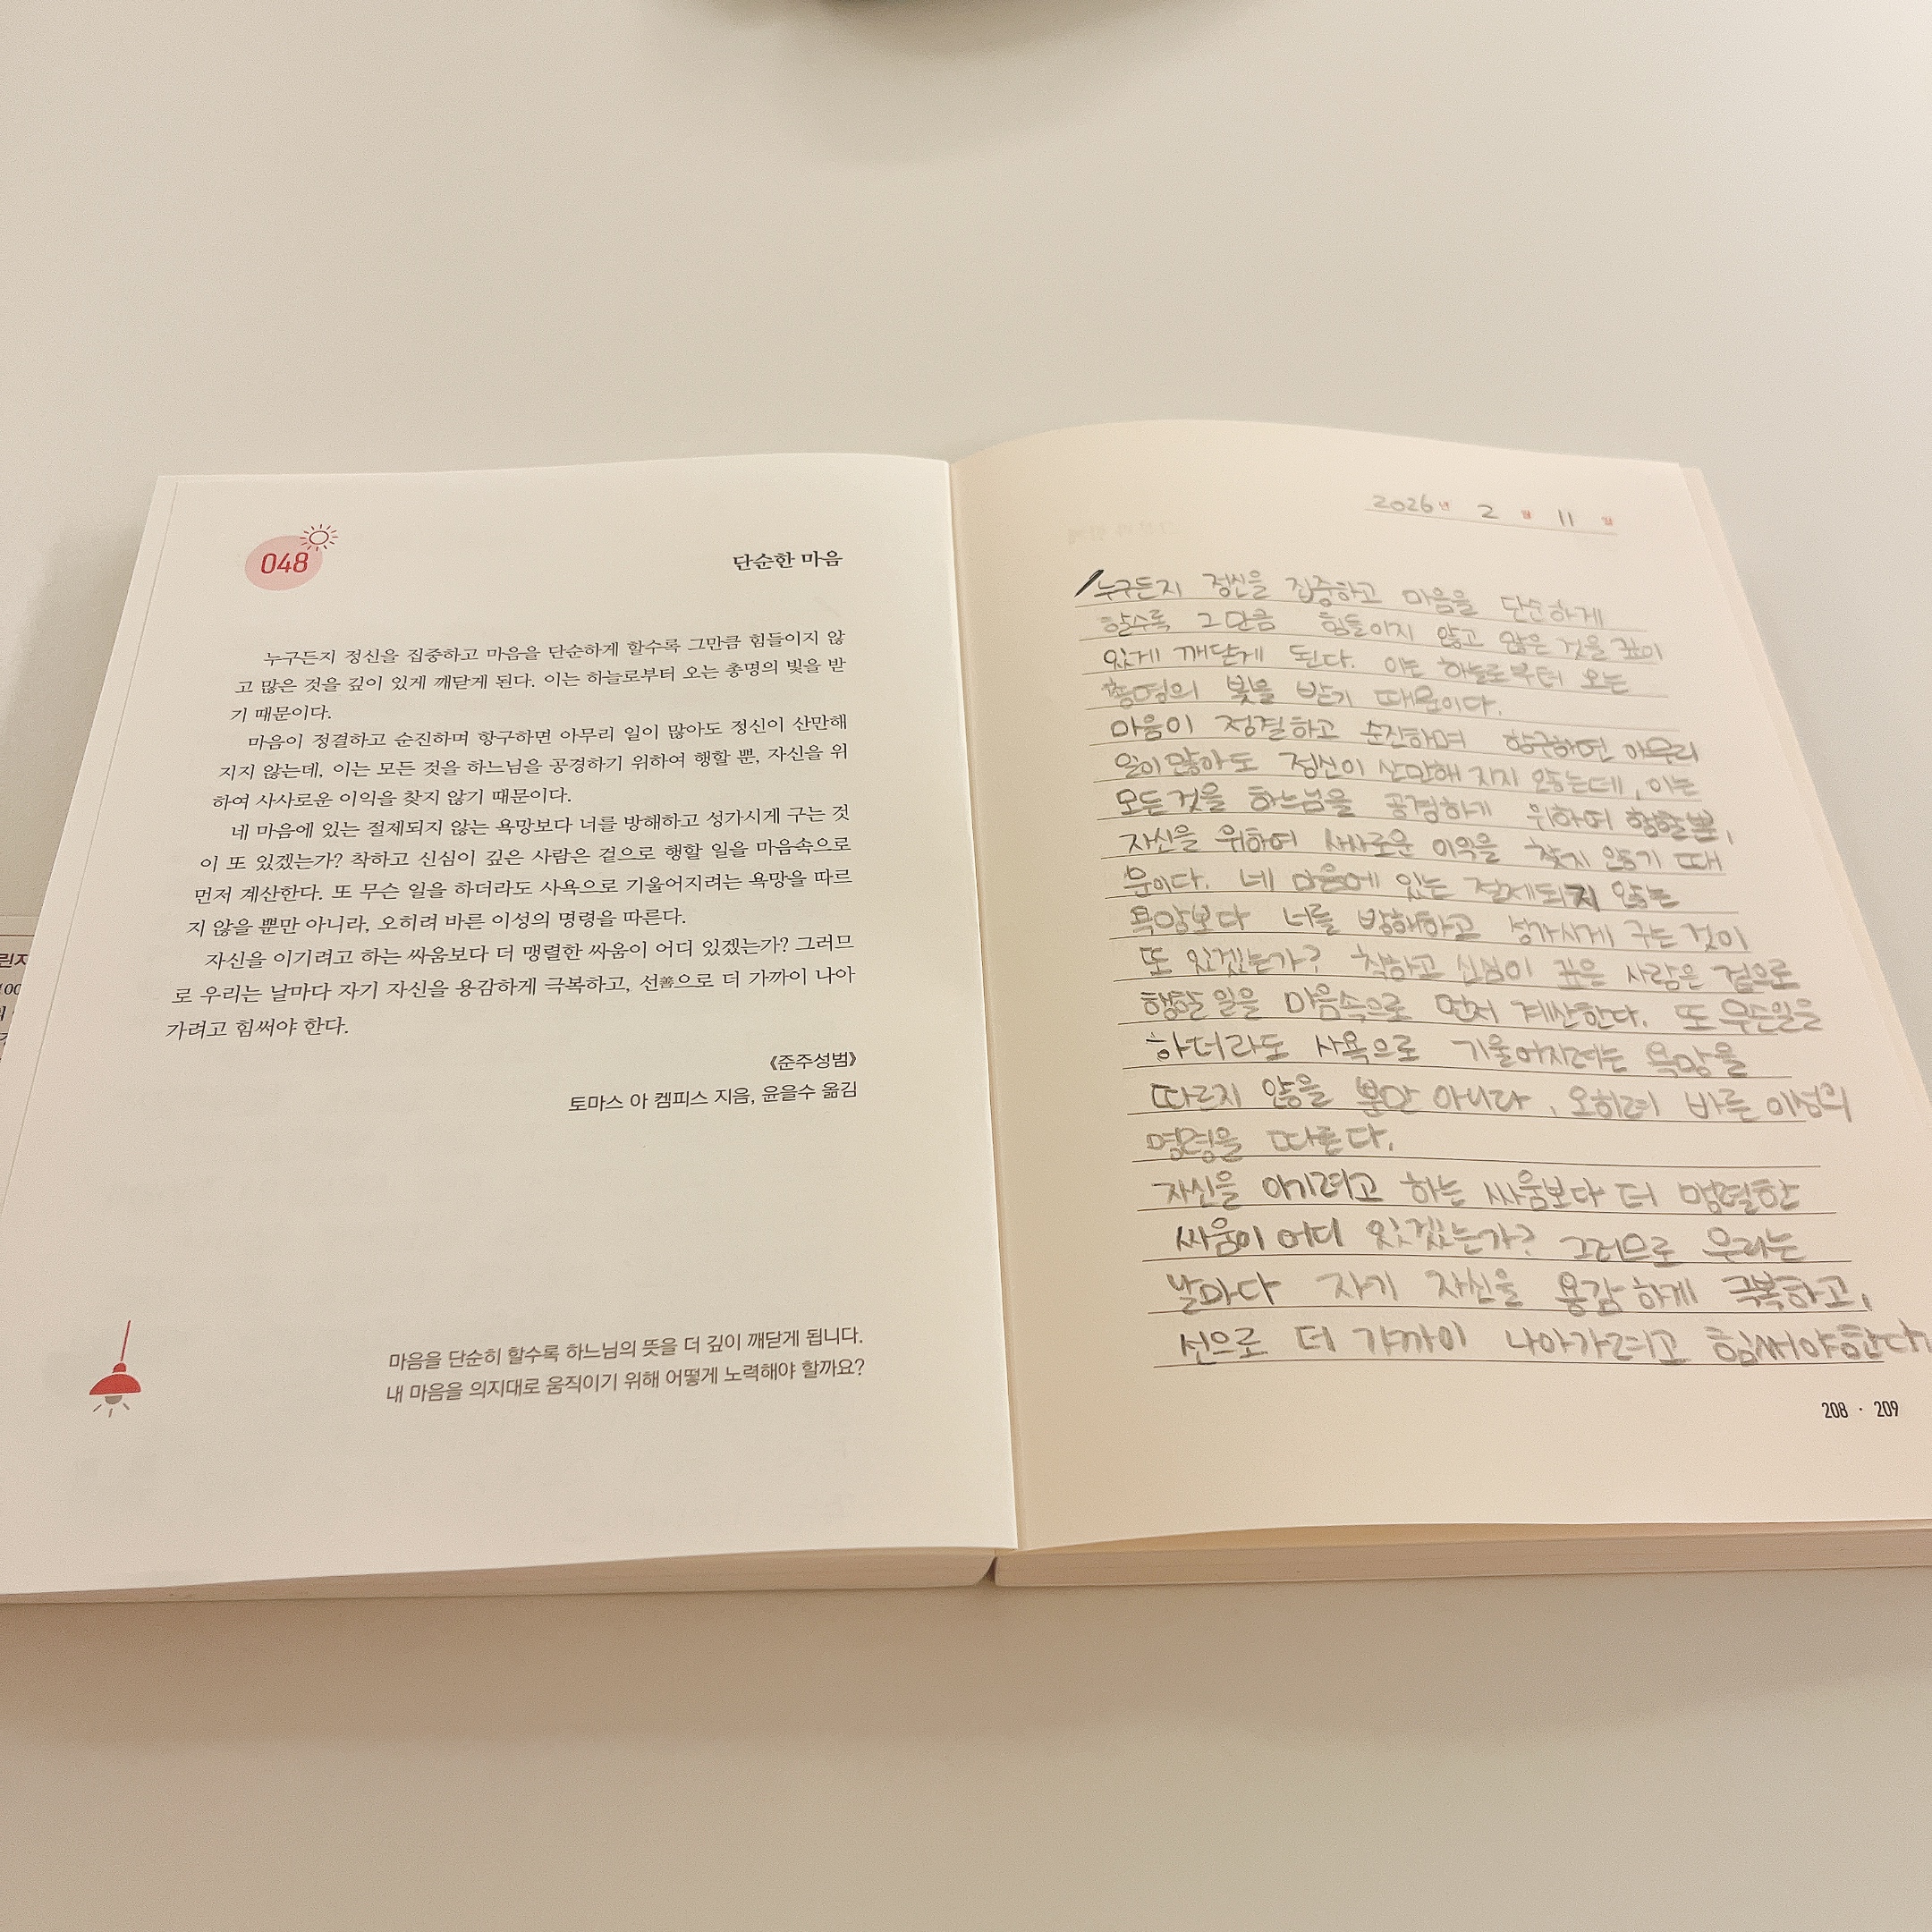 048
단순한 마음
누구든지 정신을 집중하고 마음을 단순하게 할수록 그만큼 힘들이지 않
고 많은 것을 깊이 있게 깨닫게 된다. 이는 하늘로부터 오는 총명의 빛을 받
기 때문이다.
마음이 정결하고 순진하며 항구하면 아무리 일이 많아도 정신이 산만해
지지 않는데, 이는 모든 것을 하느님을 공경하기 위하여 행할 뿐, 자신을 위
하여 사사로운 이익을 찾지 않기 때문이다.
네 마음에 있는 절제되지 않는 욕망보다 너를 방해하고 성가시게 구는 것
이 또 있겠는가? 착하고 신심이 깊은 사람은 겉으로 행할 일을 마음속으로
먼저 계산한다. 또 무슨 일을 하더라도 사욕으로 기울어지려는 욕망을 따르
지 않을 뿐만 아니라, 오히려 바른 이성의 명령을 따른다.
자신을 이기려고 하는 싸움보다 더 맹렬한 싸움이 어디 있겠는가? 그러므
로 우리는 날마다 자기 자신을 용감하게 극복하고, 선善으로 더 가까이 나아
가려고 힘써야 한다.
《준주성범》
토마스 아 켐피스 지음, 윤을수 옮김
마음을 단순히 할수록 하느님의 뜻을 더 깊이 깨닫게 됩니다.
내 마음을 의지대로 움직이기 위해 어떻게 노력해야 할까요?
2026년 2 월 11 일
누구든지 정신을 집중하고 마음을 단순하게
할수록 그만큼 힘들이지 않고 많은 것을 깊이
있게 깨닫게 된다. 이는 하늘로부터 오는
총명의 빛을 받기 때문이다.
마음이 정결하고 순진하며 항구하면 아무리
일이 많아도 정신이 산만해 지지 않는데, 이는
모든 것을 하느님을 공경하게 위하여 행할뿐,
자신을 위하여 사사로운 이익을 찾지 않기 때
문이다. 네 마음에 있는 절제되지 않는
욕망보다 너를 방해하고 성가시게 구는 것이
또 있겠는가? 착하고 신심이 깊은 사람은 겉으로
행할 일을 마음속으로 먼저 계산한다. 또 무슨일을
하더라도 사욕으로 기울어지려는 욕망을
따르지 않을 뿐만 아니라, 오히려 바른 이성의
명령을 따른다.
자신을 이기려고 하는 싸움보다 더 맹렬한
싸움이 어디 있겠는가? 그러므로 우리는
날마다 자기 자신을 용감하게 극복하고,
선으로 더 가까이 나아가려고 힘써야한다.
208 · 209